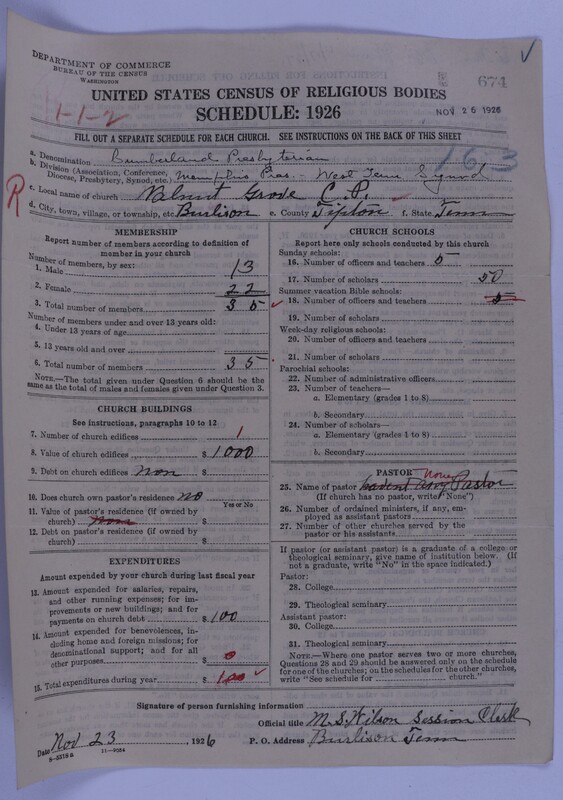 DEPARTMENT OF COMMERCE
BUREAU OF THE CENSUS
WASHINGTON
674
1-1-2
UNITED STATES CENSUS OF RELIGIOUS BODIES
SCHEDULE: 1926
NOV 26 1926
FILL OUT A SEPARATE SCHEDULE FOR EACH CHURCH. SEE INSTRUCTIONS ON THE BACK OF THIS SHEET
163
a. Denomination Cumberland Presbyterian
b. Division (Association, Conference, Diocese, Presbytery, Synod, etc.) Memphis Pres. - West Tenn Synod
R
c. Local name of church Walnut Grove C.P.
d. City, town, village, or township, etc. Burlison e. County Tipton f. State Tenn
MEMBERSHIP
Report number of members according to definition of
member in your church
Number of members, by sex:
1. Male 13
2. Female 22
3. Total number of members 35
Number of members under and over 13 years old:
4. Under 13 years of age
5. 13 years old and over
6. Total number of members 35
NOTE.—The total given under Question 6 should be the
same as the total of males and females given under Question 3.
CHURCH BUILDINGS
See instructions, paragraphs 10 to 12
7. Number of church edifices 1
8. Value of church edifices $ 1000
9. Debt on church edifices non $
10. Does church own pastor's residence no
Yes or No
11. Value of pastor's residence (if owned by
church) none $
12. Debt on pastor's residence (if owned by
church) $
EXPENDITURES
Amount expended by your church during last fiscal year
13. Amount expended for salaries, repairs,
and other running expenses; for im-
provements or new buildings; and for
payments on church debt $ 100
14. Amount expended for benevolences, in-
cluding home and foreign missions; for
denominational support; and for all
other purposes $ 0
15. Total expenditures during year $ 100
CHURCH SCHOOLS
Report here only schools conducted by this church
Sunday schools:
16. Number of officers and teachers 5
17. Number of scholars 50
Summer vacation Bible schools:
18. Number of officers and teachers 5
19. Number of scholars
Week-day religious schools:
20. Number of officers and teachers
21. Number of scholars
Parochial schools:
22. Number of administrative officers
23. Number of teachers—
a. Elementary (grades 1 to 8)
b. Secondary
24. Number of scholars—
a. Elementary (grades 1 to 8)
b. Secondary
PASTOR
None
25. Name of pastor havent any Pastor
(If church has no pastor, write "None")
26. Number of ordained ministers, if any, em-
ployed as assistant pastors
27. Number of other churches served by the
pastor or his assistants
If pastor (or assistant pastor) is a graduate of a college or
theological seminary, give name of institution below. (If
not a graduate, write "No" in the space indicated.)
Pastor:
28. College
29. Theological seminary
Assistant pastor:
30. College
31. Theological seminary
NOTE.—Where one pastor serves two or more churches,
Questions 28 and 29 should be answered only on the schedule
for one of the churches; on the schedules for the other churches,
write "See schedule for church."
Signature of person furnishing information
Official title M. S. Wilson Session Clerk
Date Nov 23, 1926 P. O. Address Burlison Tenn
8-5518 a 11-9084